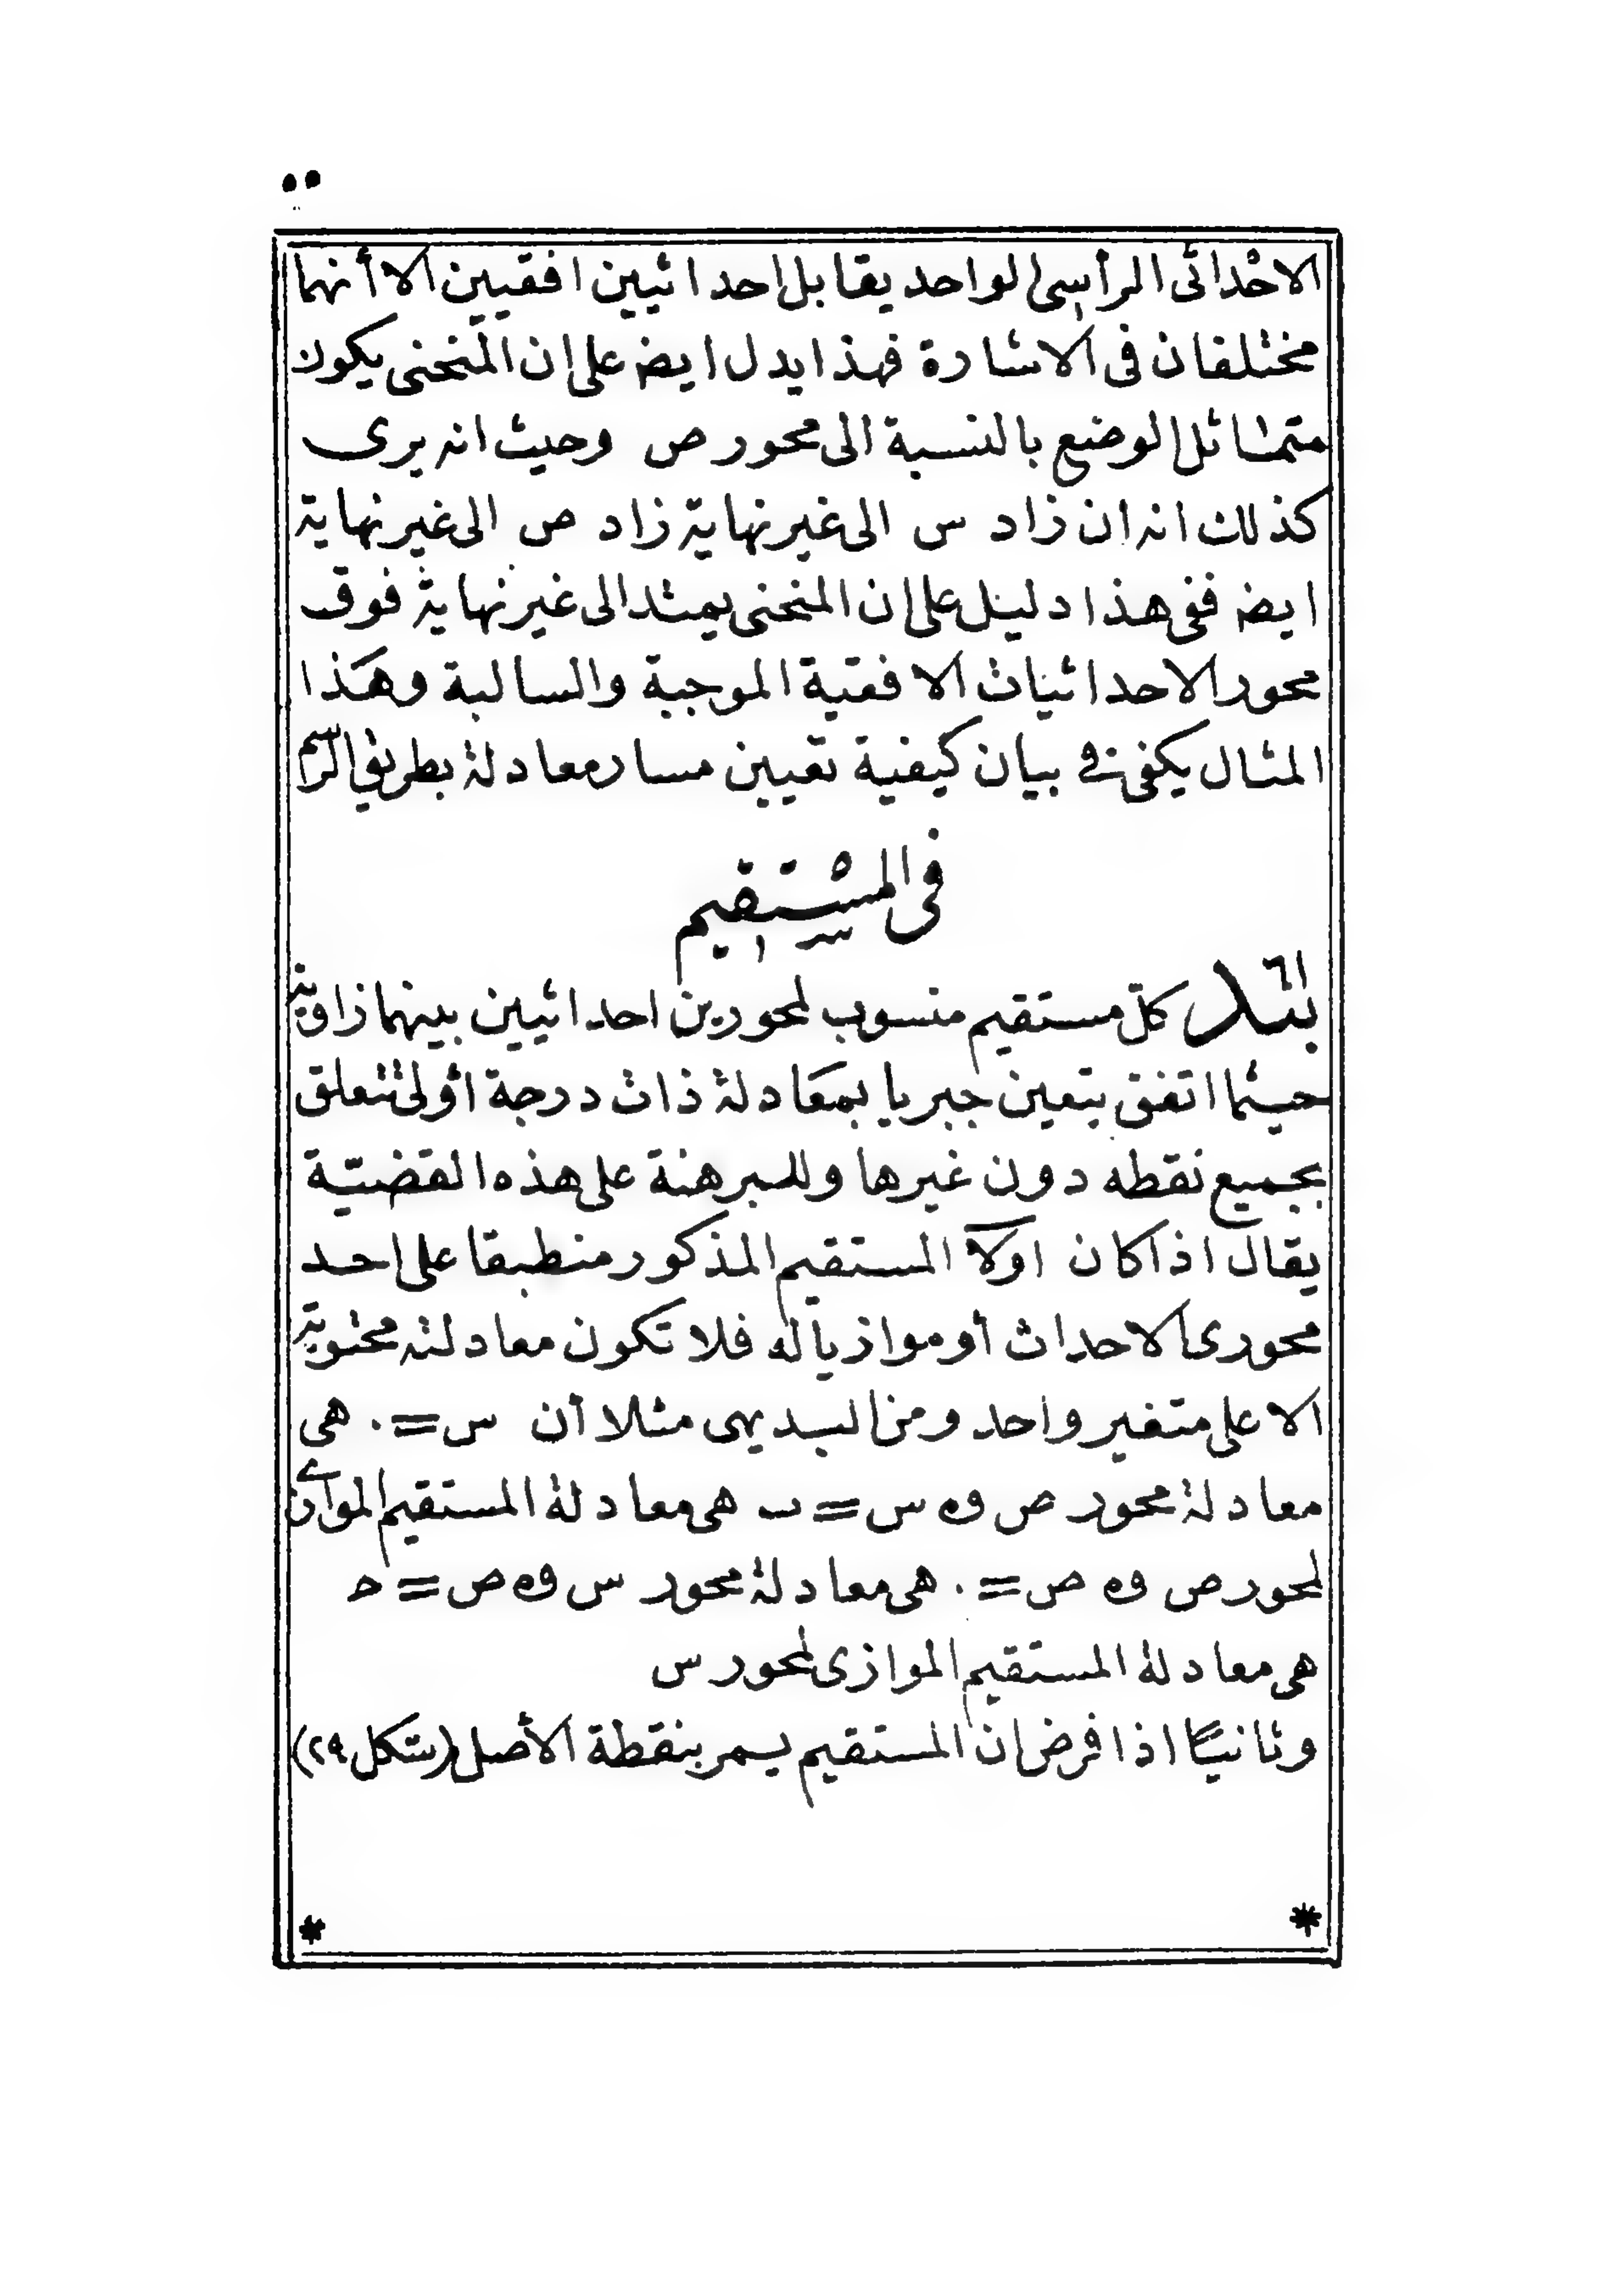 ٥٥
الاحداثى الرأسى الواحد يقابل احداثيين افقيين الا أنهما
مختلفان فى الاشارة فهذا يدل ايضه على ان المنحنى يكون
متماثل الوضع بالنسبة الى محور ص وحيث انه يرى
كذلك انه ان زاد س الى غير نهاية زاد ص الى غير نهاية
ايضه ففى هذا دليل على ان المنحنى يمتد الى غير نهاية فوق
محور الاحداثيات الافقية الموجبة والسالبة وهذا
المثال يكفى فى بيان كيفية تعيين مسار معادلة بطريق الرسم
فى المستقيم
بند ٦١ كل مستقيم منسوب لمحورين احداثيين بينهما زاوية
حيثما اتفق يتعين جبريا بمعادلة ذات درجة أولى تتعلق
بجميع نقطه دون غيرها وللبرهنة على هذه القضيّة
يقال اذا كان اولا المستقيم المذكور منطبقا على احد
محورى الاحداث أو موازيا له فلا تكون معادلته محتوية
الا على متغير واحد ومن البديهى مثلا أن س = ٠ هى
معادلة محور ص وه س = ب هى معادلة المستقيم الموازى
لمحور ص وه ص = ٠ هى معادلة محور س وه ص = ح
هى معادلة المستقيم الموازى لمحور س
وثانيًا اذا فرض ان المستقيم يمر بنقطة الأصل (شكل ٢٩)